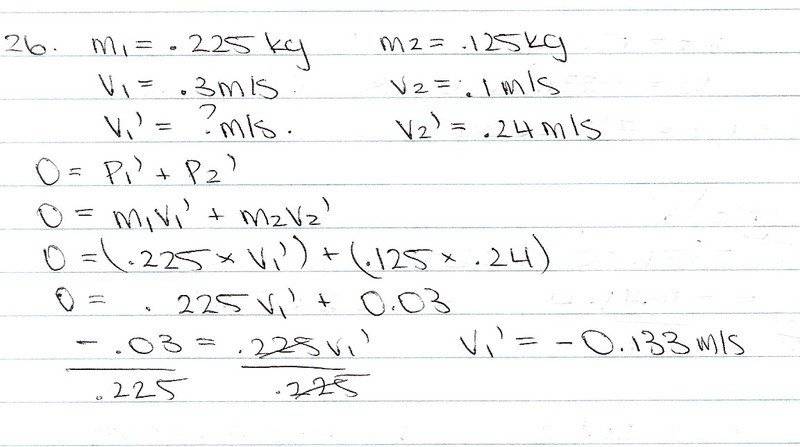 26. m₁ = .225 kg m₂ = .125 kg
v₁ = .3 m/s. v₂ = .1 m/s
v₁' = ? m/s. v₂' = .24 m/s
0 = p₁' + p₂'
0 = m₁v₁' + m₂v₂'
0 = (.225 × v₁') + (.125 × .24)
0 = .225v₁' + 0.03
- .03 = .225v₁' v₁' = -0.133 m/s
.225 .225